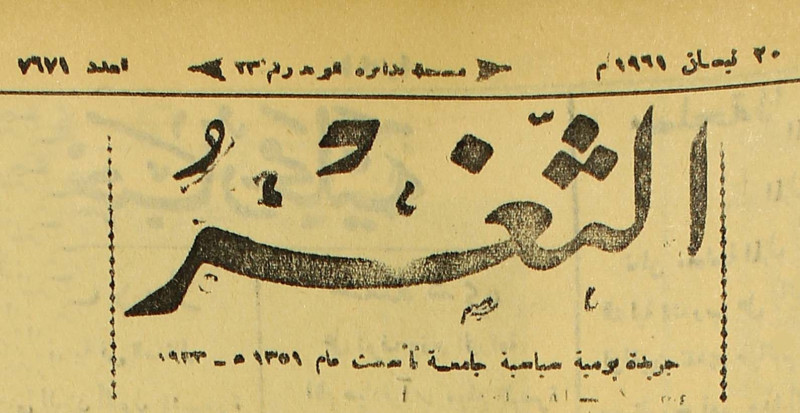 ٢٠ نيسان ١٩٦١م مسجلة بدائرة البريد رقم ٢٣ العدد ٧٦٧١
الثَّغْرُ
جريدة يومية سياسية جامعة تأسست عام ١٣٥١ ه‍ ـ ١٩٣٣